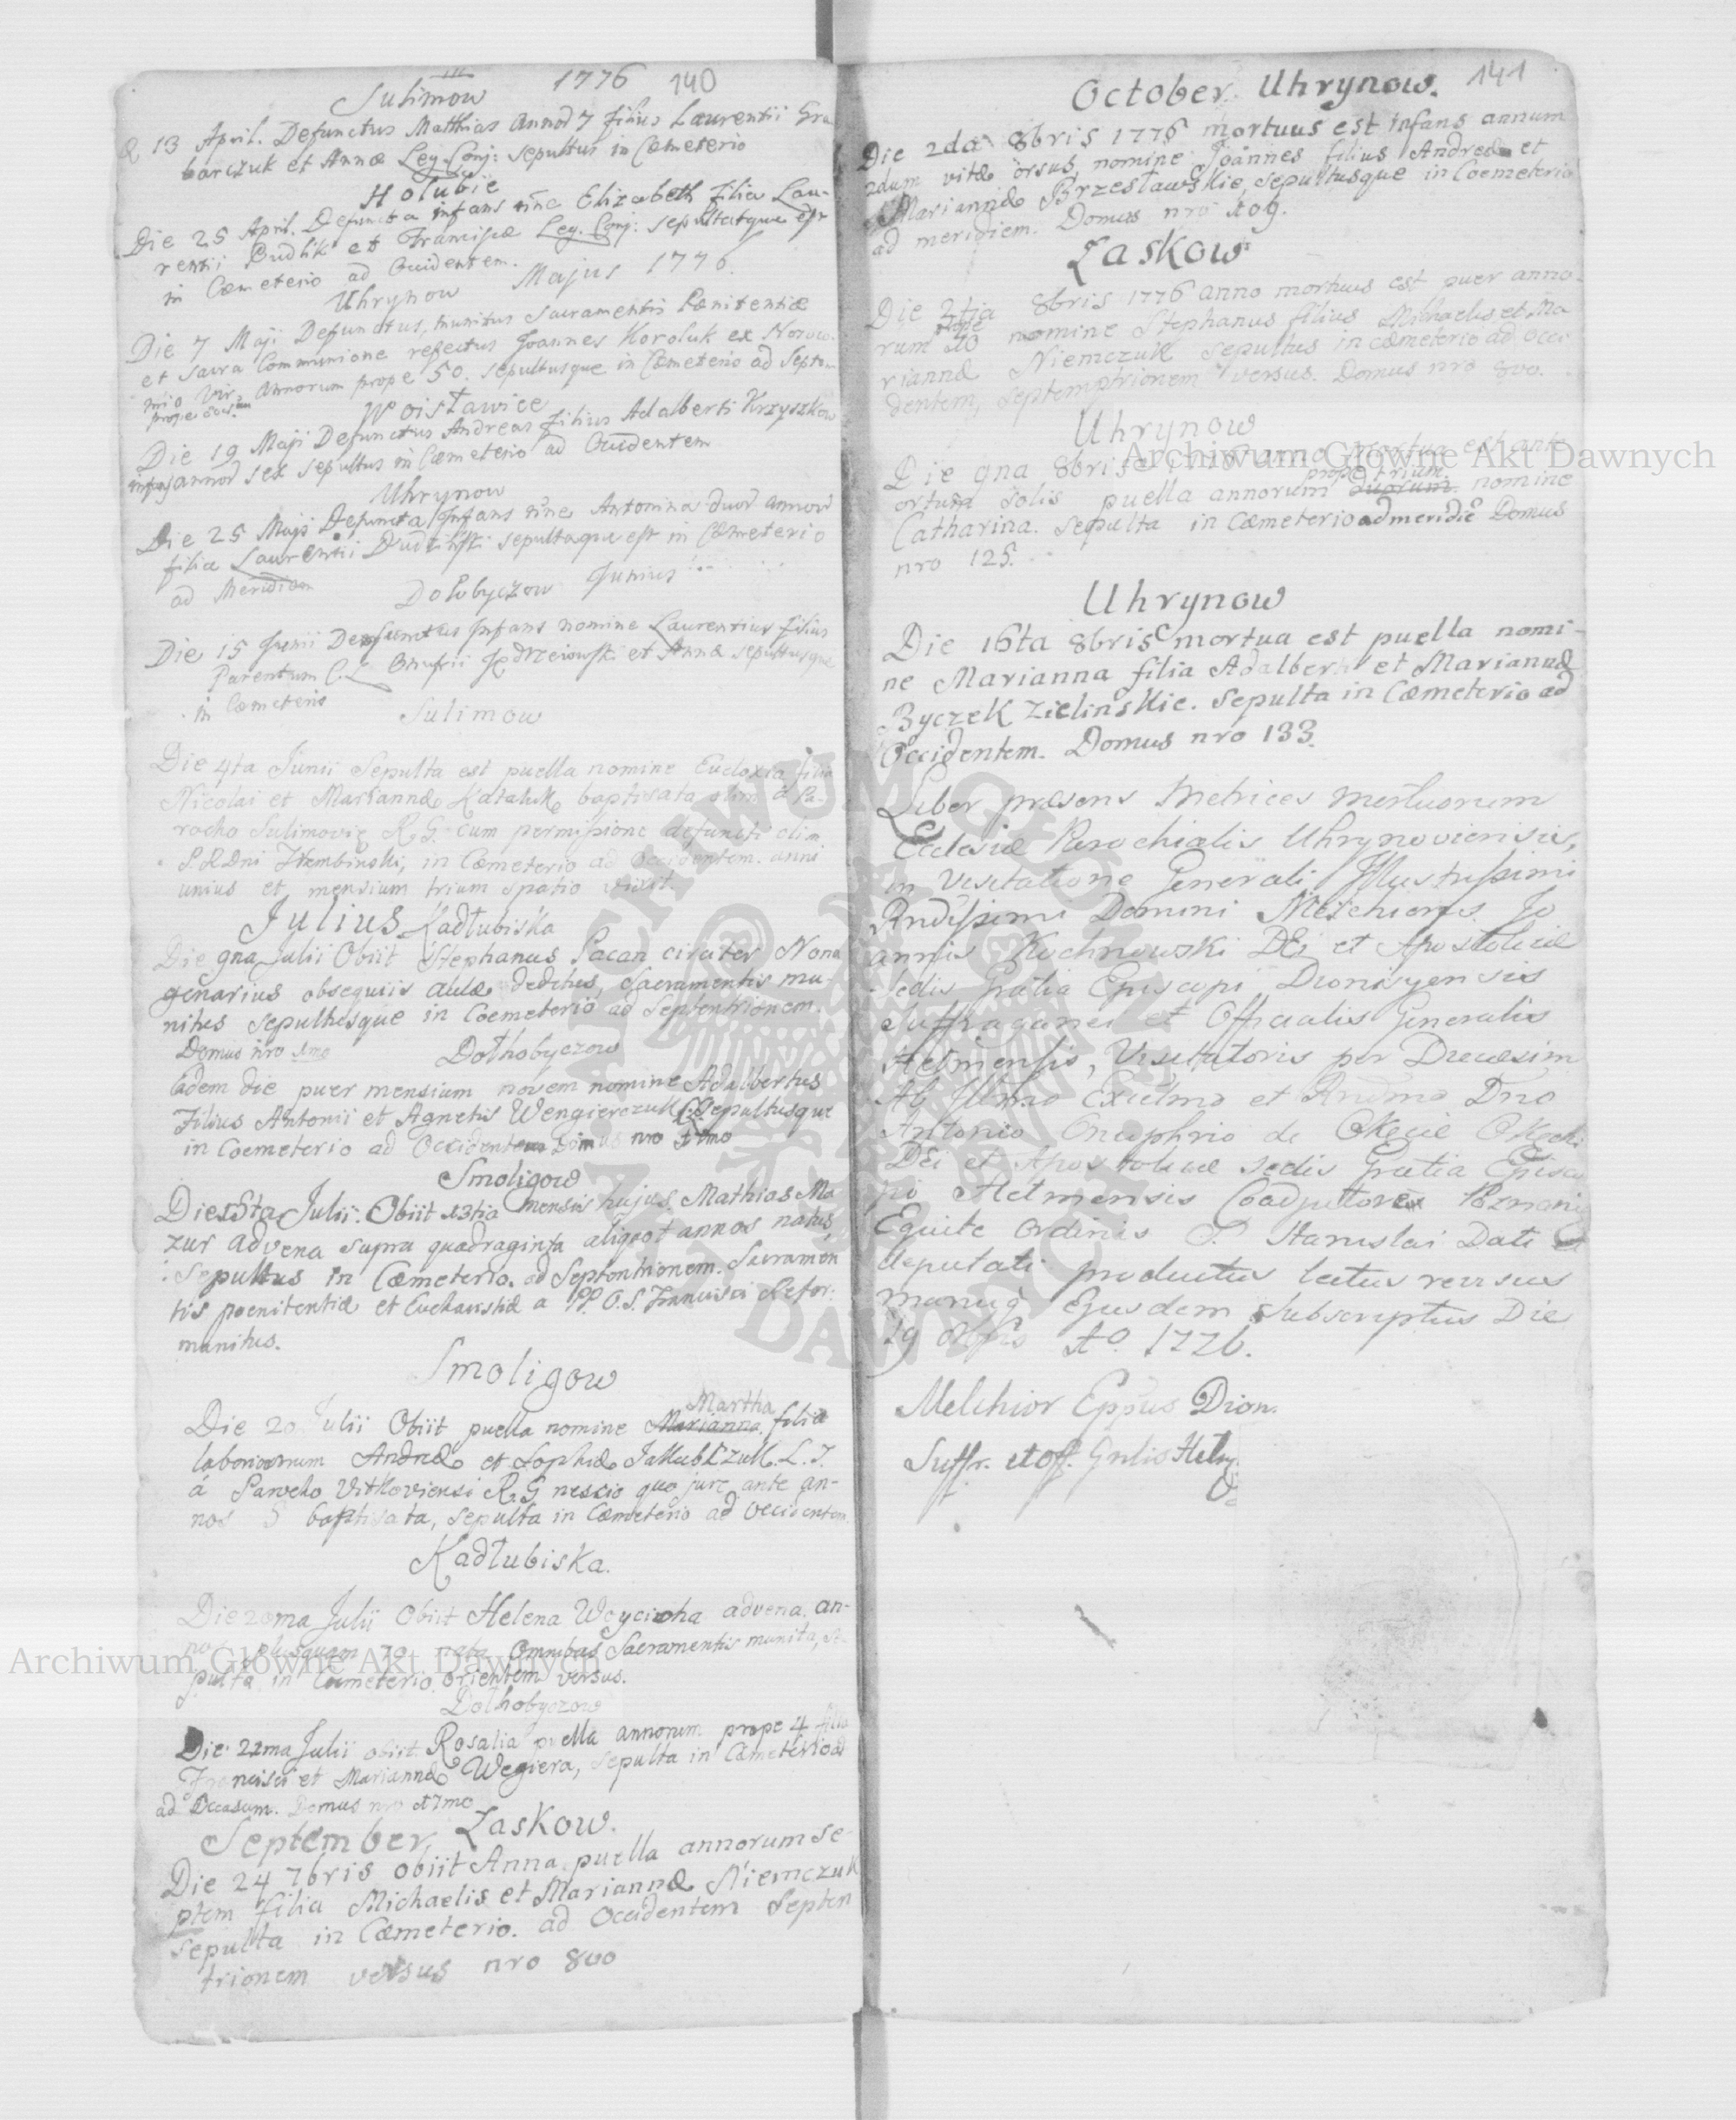 1776 140
Sulimow
13 April. Defunctus Matthias annor 7 filius Laurentii Gra
barczuk et Annæ Leg. Conj: sepultus in Cæmeterio
Holubie
Die 25 April. Defuncta infans nne Elizabeth filia Lau-
rentii Budlik et Franciscæ Leg. Conj: sepultaque est
in Cæmeterio ad Occidentem.
Uhrynow Majus 1776.
Die 7 Maji Defunctus, munitus Sacramentis Pænitentiæ
et Sacra Communione refectus Joannes Koroluk ex
vir, annorum prope 50. sepultusque in Cæmeterio ad Septem
Woisławice
Die 19 Maji Defunctus Andreas filius Adalberti Krzyszkow
infans annor sex sepultus in Cæmeterio ad Occidentem
Uhrynow
Die 25 Maji Defuncta Infans nne Antonina duor annor
filia Laurentii sepultaque est in Cæmeterio
ad Meridiem
Dołobyczow Junius
Die 15 Junii Defunctus Infans nomine Laurentius filius
Parentum C. L. Onufrii et Annæ sepultusque
in Cæmeterio
Sulimow
Die 4ta Junii Sepulta est puella nomine Eudoxia filia
Nicolai et Mariannæ baptisata olim a Pa-
rocho Sulimovię R. G. cum permissione defuncti olim
in Cæmeterio ad Occidentem. anni
unius et mensium trium spatio vixit.
Julius Kadłubiska
Die gna Julii Obiit Stephanus Pacan circiter Nona
genarius obsequiis aulæ deditus, Sacramentis mu-
nitus sepultusque in Coemeterio ad Septentrionem.
Domus nro
Dołhobyczow
Eadem die puer mensium novem nomine Adalbertus
Filius Antonii et Agnetis Wengierczuk Sepultusque
in Coemeterio ad Occidentem Domus nro
Smoligow
Die 15ta Julii. Obiit 13tia mensis hujus Mathias Ma
zur advena supra quadraginta aliquot annos natus,
Sepultus in Cæmeterio. ad Septentrionem. Sacramen
tis poenitentiæ et Eucharistiæ a PP. O. S. Francisci Refor:
munitus.
Smoligow
Martha
Die 20 Julii Obiit puella nomine Marianna. filia
laboriosorum Andreæ et Sophiæ Jakubczuk. L. J.
á Parocho Vitkoviensi R. G nescio quo jure ante an-
nos 5 baptisata, sepulta in Cæmeterio ad Occidentem.
Kadłubiska.
Die 20ma Julii Obiit Helena advena. an-
nos plusquam 70 nata Omnibus Sacramentis munita, se-
pulta in Cæmeterio orientem versus.
Dołhobyczow
Die 22ma Julii obiit Rosalia puella annorum prope 4 filia
Francisci et Mariannæ Wegiera, sepulta in Cæmeterio ad
ad Occasum. Domus nro 17mo
September, Łaskow.
Die 24 7bris obiit Anna, puella annorum se-
ptem filia Michaelis et Mariannæ Niemczuk
Sepulta in Cæmeterio. ad Occidentem Septen
trionem versus nro 800
141
October. Uhrynow.
Die 2da 8bris 1776 mortuus est infans annum
2dum vitæ orsus, nomine Joannes filius Andreæ et
Mariannæ Brzesławskie, sepultusque in Coemeterio
ad meridiem. Domus nro 109.
Łaskow
Die 8bris 1776 anno mortuus est puer anno-
prope
rum 10 nomine Stephanus filius Michaelis et Ma
riannæ Niemczuk Sepultus in cæmeterio ad Occi
dentem, Septemptrionem versus. Domus nro 800.
Uhrynow
Die gna 8bris anno mortua est ante
prope trium
ortum Solis puella annorum duorum nomine
Catharina. Sepulta in Cæmeterio ad meridiē Domus
nro 125.
Uhrynow
Die 16ta 8bris mortua est puella nomi-
ne Marianna filia Adalberti et Mariannæ
Byczek Zielinskie. Sepulta in Cæmeterio ad
Occidentem. Domus nro 133.
Liber præsens Metrices Mortuorum
Ecclesiæ Parochialis Uhrynoviensis,
in Visitatione Generali Illustrissimi
Rndissimi Domini Melchioris Jo
annis Kochnowski DEi et Apostolicæ
Sedis Gratia Episcopi Dionisyensis
Suffraganei et Officialis Generalis
Helmensis, Visitatoris per Diæcesim
Ab Illmo Excellmo et Rndmo Dno
Antonio Onuphrio de Okęcie Okęcki
DEi et Apostolicæ Sedis Gratia Episco
pi Helmensis Coadjutore Posnani
Equite Ordinis S. Stanislai Dati et
deputati productus lectus revisus
manuq Ejusdem Subscriptus Die
19 Ao. 1776.
Melchior Eppus Dion.
Suffr. et off. Gnlis Helm.
Archiwum Główne Akt Dawnych
Archiwum Główne Akt Dawnych
ARCHIWUM GŁÓWNE AKT DAWNYCH